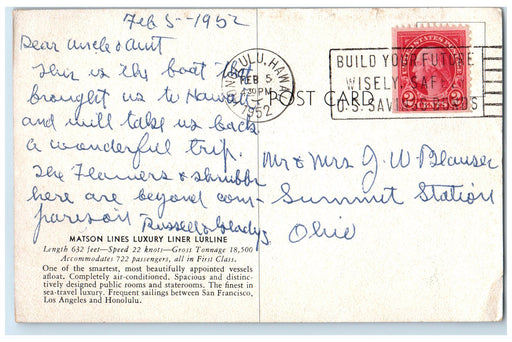 Feb 5 - 1952
Dear Uncle & Aunt
This is the boat that
brought us to Hawaii
and will take us back
a wonderful trip.
The Flowers & shrubbs
here are beyond com-
parison
Russell & Gladys
MATSON LINES LUXURY LINER LURLINE
Length 632 feet—Speed 22 knots—Gross Tonnage 18,500
Accommodates 722 passengers, all in First Class.
One of the smartest, most beautifully appointed vessels
afloat. Completely air-conditioned. Spacious and distinc-
tively designed public rooms and staterooms. The finest in
sea-travel luxury. Frequent sailings between San Francisco,
Los Angeles and Honolulu.
HONOLULU, HAWAII
FEB 5
PM
1952
POST CARD
BUILD YOUR FUTURE
WISELY, SAFELY
U.S. SAVINGS BONDS
2 CENTS 2
Mr & Mrs J. W. Blauser
Summit Station
Ohio